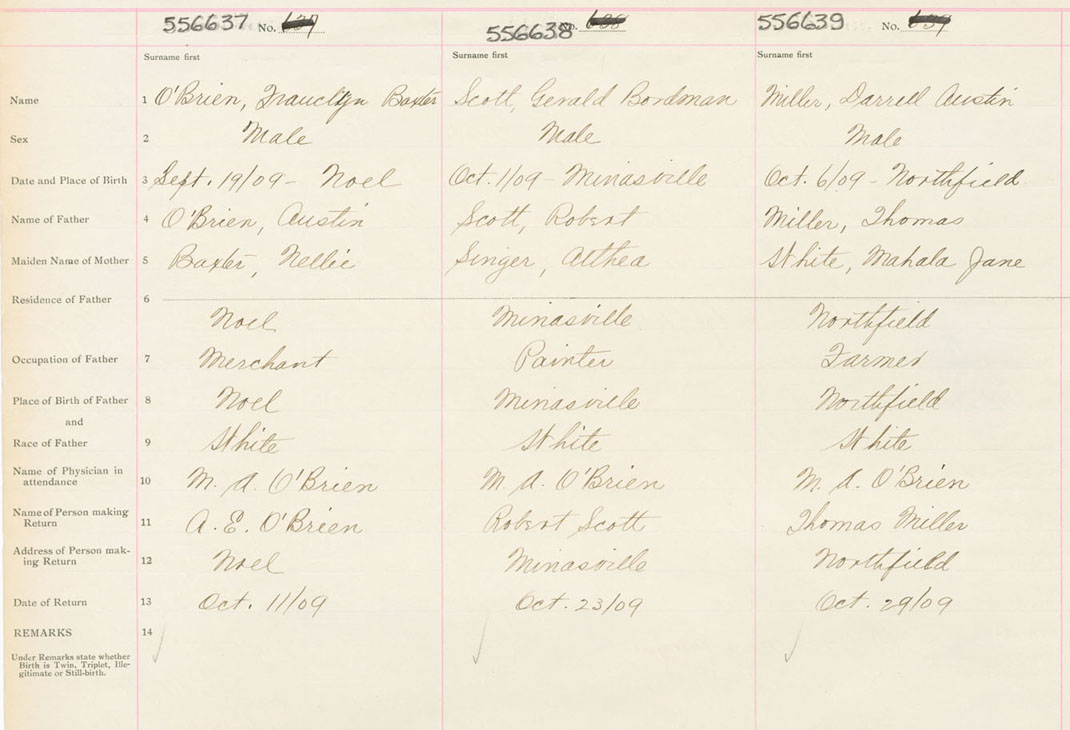 556637 No.
556638 No.
556639 No.
Surname first Surname first Surname first
Name 1 O'Brien, Baxter Scott, Gerald Bordman Miller, Darrell Austin
Sex 2 Male Male Male
Date and Place of Birth 3 Sept. 19/09 - Noel Oct. 1/09 - Minasville Oct. 6/09 - Northfield
Name of Father 4 O'Brien, Austin Scott, Robert Miller, Thomas
Maiden Name of Mother 5 Baxter, Nellie Singer, Althea White, Mahala Jane
Residence of Father 6
Noel Minasville Northfield
Occupation of Father 7 Merchant Painter Farmer
Place of Birth of Father 8 Noel Minasville Northfield
and
Race of Father 9 White White White
Name of Physician in
attendance 10 M. A. O'Brien M. A. O'Brien M. A. O'Brien
Name of Person making
Return 11 A. E. O'Brien Robert Scott Thomas Miller
Address of Person mak-
ing Return 12 Noel Minasville Northfield
Date of Return 13 Oct. 11/09 Oct. 23/09 Oct. 29/09
REMARKS 14
Under Remarks state whether
Birth is Twin, Triplet, Ille-
gitimate or Still-birth.